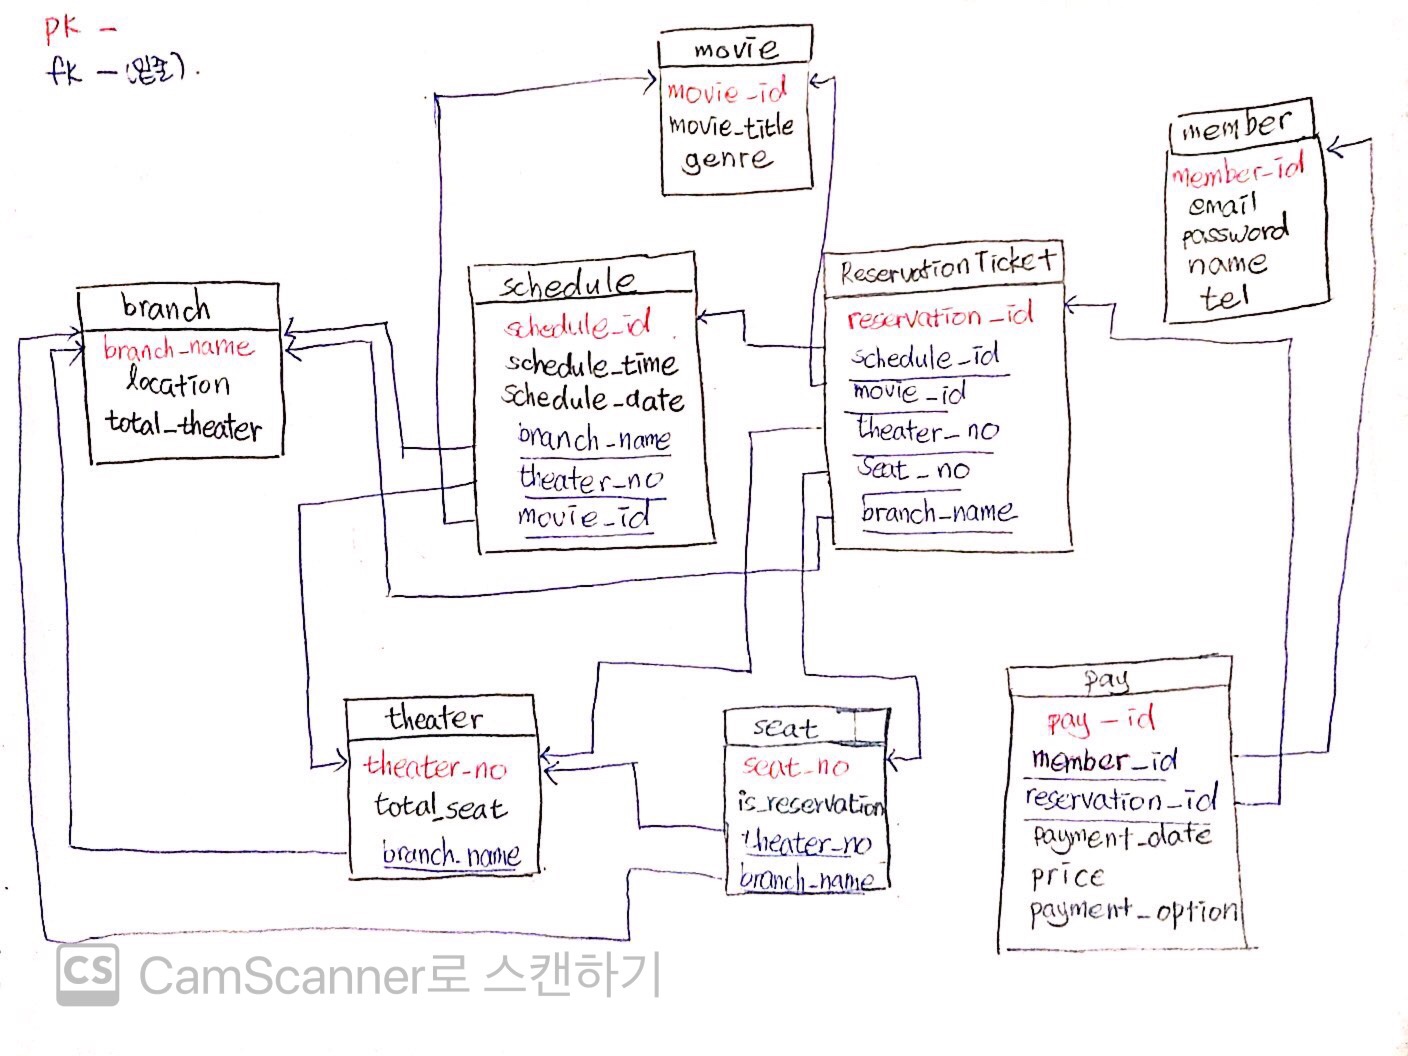 pk -
fk - (밑줄).
movie
movie_id
movie_title
genre
member
member_id
email
password
name
tel
branch
branch_name
location
total_theater
schedule
schedule_id
schedule_time
schedule_date
branch_name
theater_no
movie_id
ReservationTicket
reservation_id
schedule_id
movie_id
theater_no
seat_no
branch_name
theater
theater_no
total_seat
branch_name
seat
seat_no
is_reservation
theater_no
branch_name
pay
pay_id
member_id
reservation_id
payment_date
price
payment_option
CS CamScanner로 스캔하기